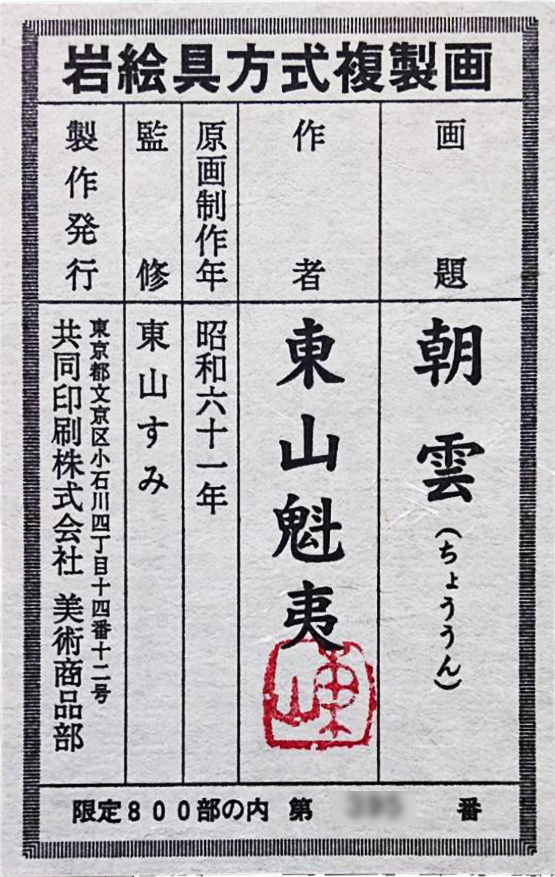 岩絵具方式複製画
画題
朝雲(ちょううん)
作者
東山魁夷
原画制作年
昭和六十一年
監修
東山すみ
製作発行
東京都文京区小石川四丁目十四番十二号
共同印刷株式会社 美術商品部
限定800部の内 第 番